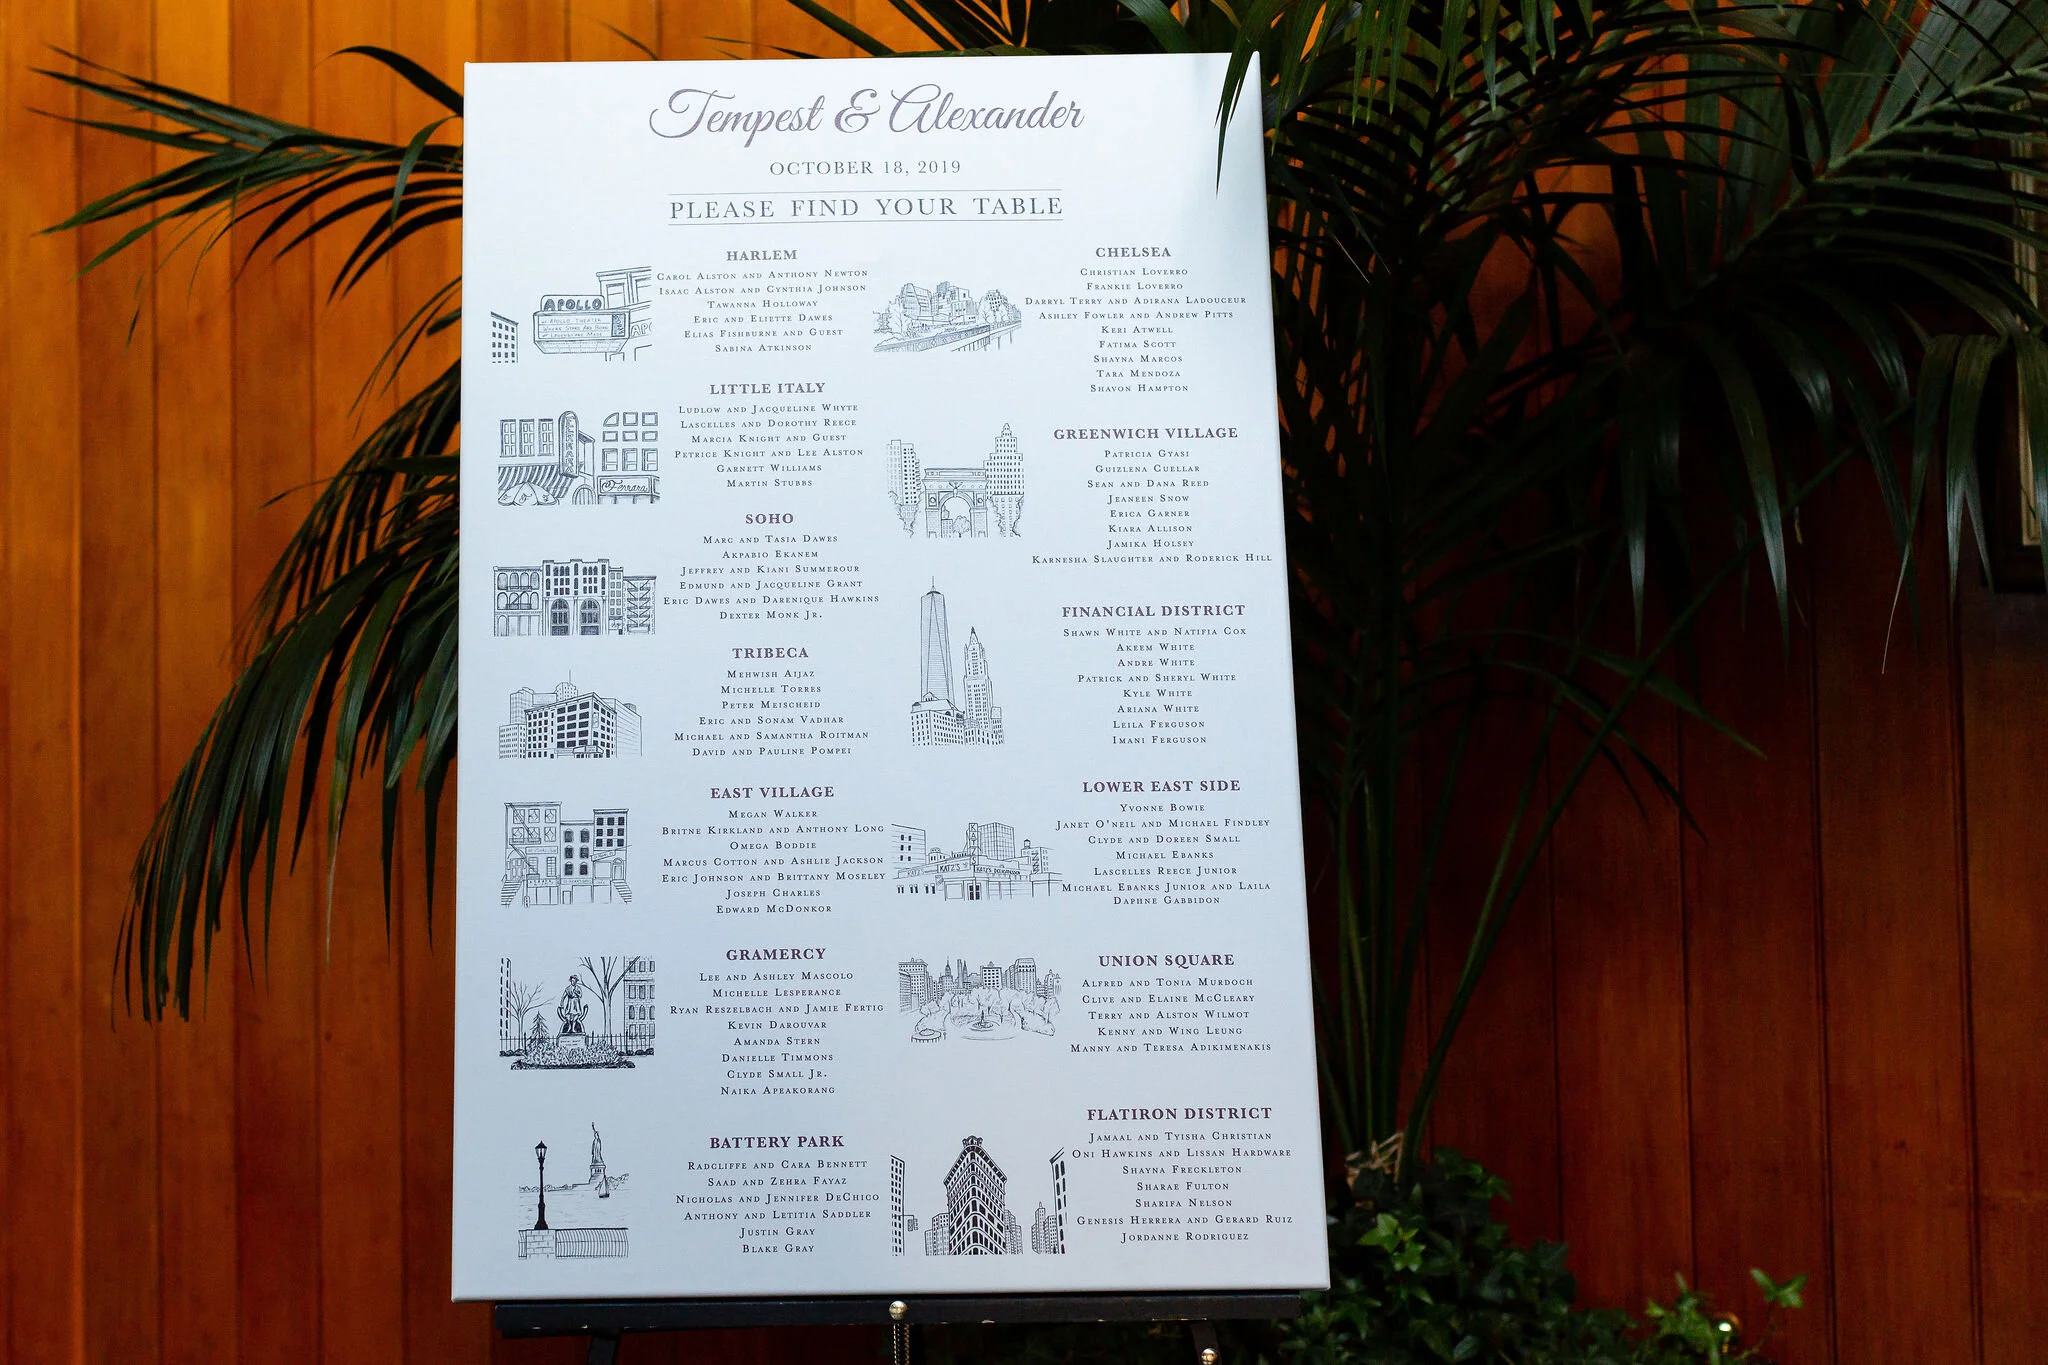 Tempest & Alexander
OCTOBER 18, 2019
PLEASE FIND YOUR TABLE
HARLEM
Carol Alston and Anthony Newton
Isaac Alston and Cynthia Johnson
Tawanna Holloway
Eric and Eliette Dawes
Elias Fishburne and Guest
Sabina Atkinson
APOLLO
APOLLO THEATER
LITTLE ITALY
Ludlow and Jacqueline Whyte
Lascelles and Dorothy Reece
Marcia Knight and Guest
Petrice Knight and Lee Alston
Garnett Williams
Martin Stubbs
Ferrara
SOHO
Marc and Tasia Dawes
Akpabio Ekanem
Jeffrey and Kiani Summerour
Edmund and Jacqueline Grant
Eric Dawes and Darenique Hawkins
Dexter Monk Jr.
TRIBECA
Mehwish Aijaz
Michelle Torres
Peter Meischeid
Eric and Sonam Vadhar
Michael and Samantha Roitman
David and Pauline Pompei
EAST VILLAGE
Megan Walker
Britne Kirkland and Anthony Long
Omega Boddie
Marcus Cotton and Ashlie Jackson
Eric Johnson and Brittany Moseley
Joseph Charles
Edward McDonkor
GRAMERCY
Lee and Ashley Mascolo
Michelle Lesperance
Ryan Reszelbach and Jamie Fertig
Kevin Darouvar
Amanda Stern
Danielle Timmons
Clyde Small Jr.
Naika Apeakorang
BATTERY PARK
Radcliffe and Cara Bennett
Saad and Zehra Fayaz
Nicholas and Jennifer DeChico
Anthony and Letitia Saddler
Justin Gray
Blake Gray
CHELSEA
Christian Loverro
Frankie Loverro
Darryl Terry and Adirana Ladouceur
Ashley Fowler and Andrew Pitts
Keri Atwell
Fatima Scott
Shayna Marcos
Tara Mendoza
Shavon Hampton
GREENWICH VILLAGE
Patricia Gyasi
Guizlena Cuellar
Sean and Dana Reed
Jeaneen Snow
Erica Garner
Kiara Allison
Jamika Holsey
Karnesha Slaughter and Roderick Hill
FINANCIAL DISTRICT
Shawn White and Natifia Cox
Akeem White
Andre White
Patrick and Sheryl White
Kyle White
Ariana White
Leila Ferguson
Imani Ferguson
LOWER EAST SIDE
Yvonne Bowie
Janet O'neil and Michael Findley
Clyde and Doreen Small
Michael Ebanks
Lascelles Reece Junior
Michael Ebanks Junior and Laila
Daphne Gabbidon
KATZ'S
KATZ'S DELICATESSEN
UNION SQUARE
Alfred and Tonia Murdoch
Clive and Elaine McCleary
Terry and Alston Wilmot
Kenny and Wing Leung
Manny and Teresa Adikimenakis
FLATIRON DISTRICT
Jamaal and Tyisha Christian
Oni Hawkins and Lissan Hardware
Shayna Freckleton
Sharae Fulton
Sharifa Nelson
Genesis Herrera and Gerard Ruiz
Jordanne Rodriguez